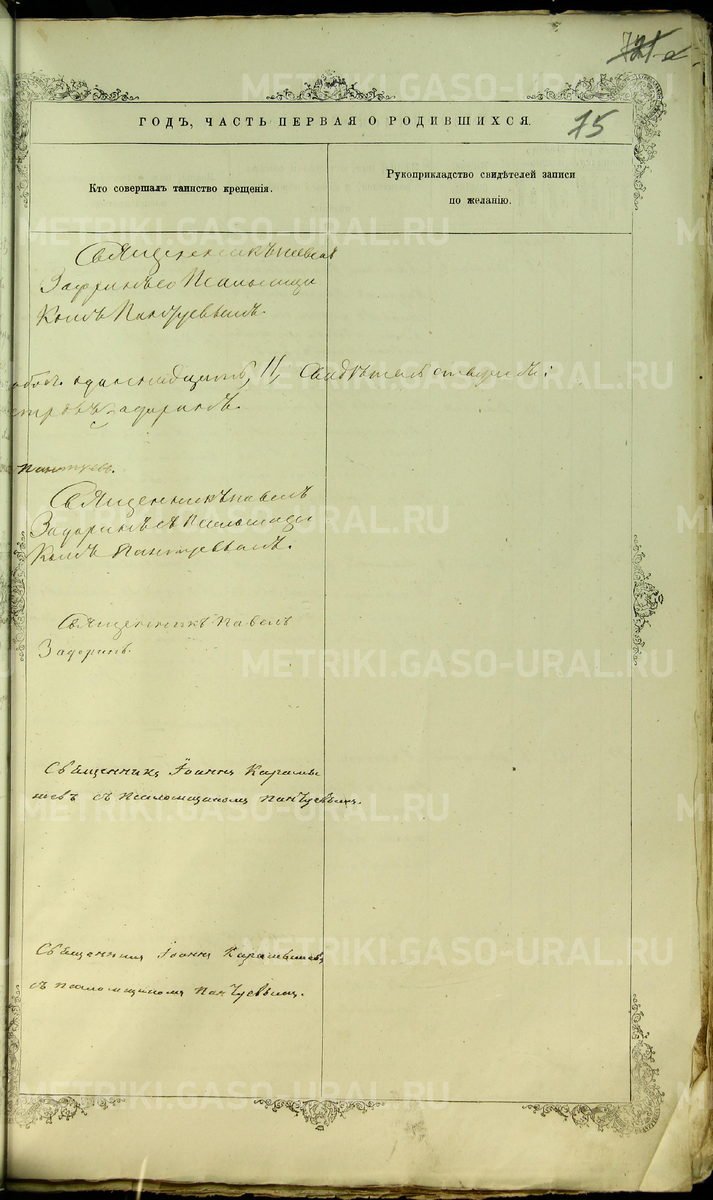 75
ГОДЪ, ЧАСТЬ ПЕРВАЯ О РОДИВШИХСЯ.
Кто совершалъ таинство крещенія.
Рукоприкладство свидѣтелей записи
по желанію.
Священникъ
Задоринъ съ Псаломщи
комъ Пантуевымъ.
11,
Задоринъ.
Священникъ Павелъ
Задоринъ съ Псаломщи
комъ Пантуевымъ.
Священникъ Павелъ
Задоринъ.
Священникъ Іоаннъ Карамы
шевъ съ Псаломщикомъ Пантуевымъ.
Священникъ Іоаннъ Карамышевъ
съ псаломщикомъ Пантуевымъ.
METRIKI.GASO-URAL.RU